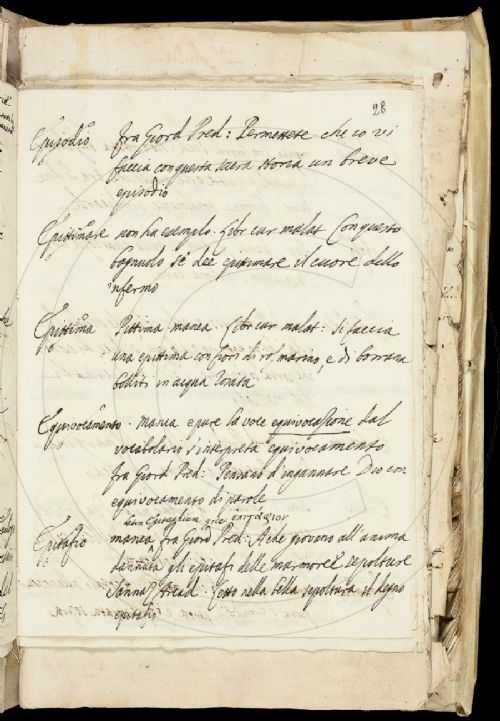 28
Episodio fra Giord Pred: Permettete che io vi
faccia con questa sacra storia un breve
episodio
Epittimare non ha esempio. Libr cur malat Con questo
bagnuolo si dee epittimare il cuore dello
infermo
Epittima Pittima manca. Libr cur malat. Si faccia
una epittima con fiori di rosmarino, e di borrana
bolliti in acqua
Equivocamento. manca e pure la voce equivocazione dal
vocabolario s'interpreta equivocamento
fra Giord Pred: Pensano d'ingannare Dio con
equivocamento di parole
Epitafio manca fra Giord Pred: A che giovano all'anima
dannata gli epitafi delle marmoree sepolture
Sannaz Arcad. Letto nella bella sepoltura il degno
epitafio